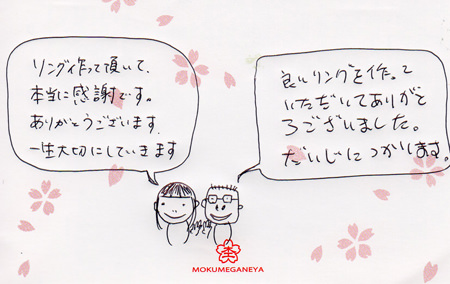 リング作って頂いて、
本当に感謝です。
ありがとうございます。
一生大切にしていきます
良いリングを作って
いただいてありがと
うございました。
だいじにつかいます。
MOKUMEGANEYA